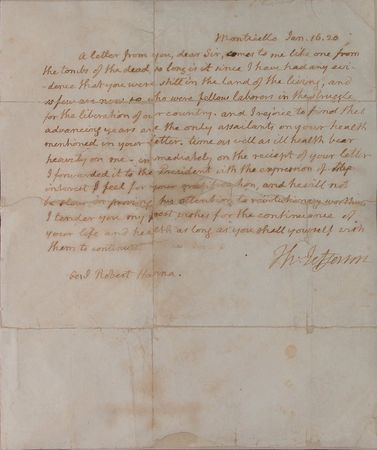 Monticello Jan. 16. 20
A letter from you, dear Sir, comes to me like one from
the tombs of the dead, so long is it since I have had any evi-
dence that you were still in the land of the living, and
so few are now so who were fellow laborers in the struggle
for the liberation of our country. and I rejoice to find that
advancing years are the only assailants on your health
mentioned in your letter. time as well as ill health bear
heavily on me. immediately on the reciept of your letter
I forwarded it to the President with the expression of the
interest I feel for your gratification, and he will not
be slow in proving his attention to revolutionary worth.
I tender you my best wishes for the continuance of
your life and health as long as you shall yourself wish
them to continue.
Th: Jefferson
Robert Hanna.